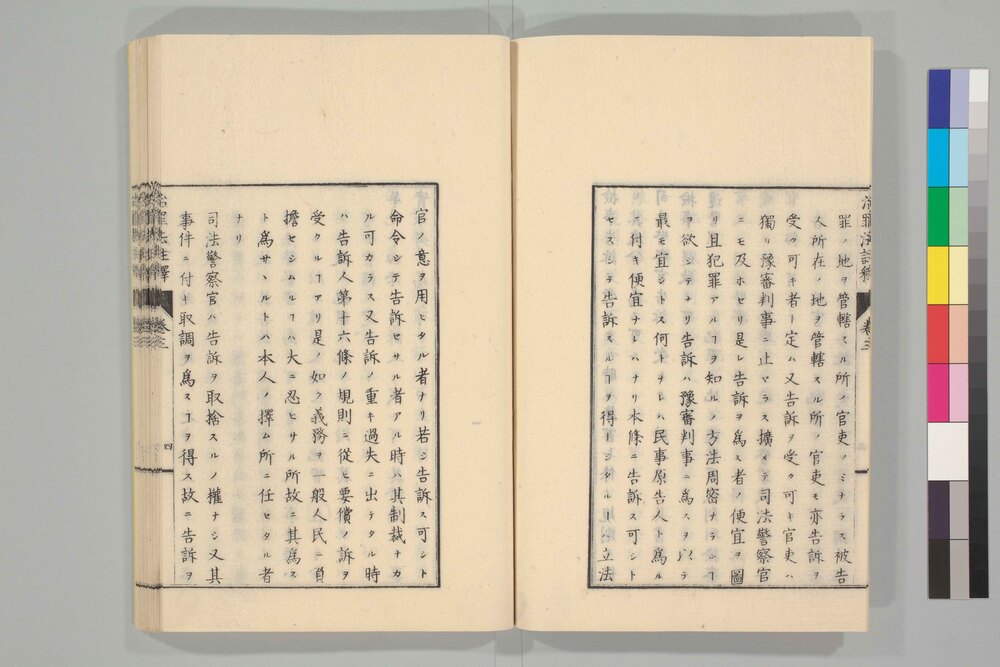 罪ノ地ヲ管轄スル所ノ官吏ノミナラス被告
人所在ノ地ヲ管轄スル所ノ官吏モ亦告訴ヲ
受ク可キ者ト定ハ又告訴ヲ受ク可キ官吏ハ
獨リ豫審判事ニ止マラス擴メテ司法警察官
ニモ及ホセリ是レ告訴ヲ爲ス者ノ便宜ヲ圖
リ且犯罪アルヿヲ知ルノ方法周密ナランヿ
ヲ欲シテナリ告訴ハ豫審判事ニ爲スヲ以テ
最モ宜シトス何トナレハ民事原告人ト爲ル
ニ付キ便宜ナレハナリ本條ニ告訴ス可シト
セスシテ告訴スルヿヲ得トシタルハ立法
官ノ意ヲ用ヒタル者ナリ若シ告訴ス可シト
命令シテ告訴セサル者アル時ハ其制裁ナカ
ル可カラス又告訴ノ重キ過失ニ出テタル時
ハ告訴人第十六條ノ規則ニ從ヒ要償ノ訴ヲ
受クルヿアリ是ノ如ク義務ヲ一般人民ニ負
擔セシムルヿハ大ニ忍ヒサル所故ニ其爲ス
ト爲サヽルトハ本人ノ擇ム所ニ任セタル者
ナリ
司法警察官ハ告訴ヲ取捨スルノ權ナシ又其
事件ニ付キ取調ヲ爲スヿヲ得ス故ニ告訴ヲ
治罪法註釋
卷三
四